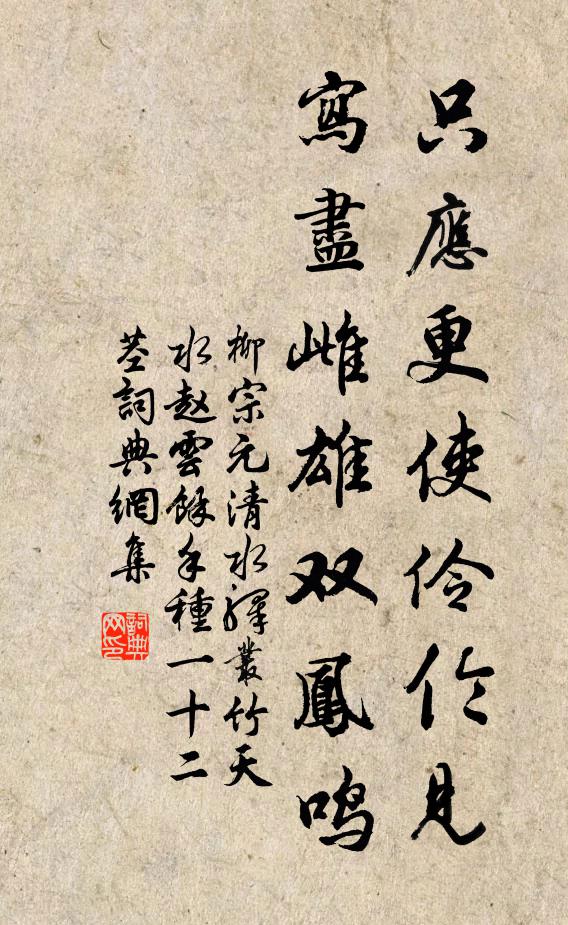 只應更使伶倫見
寫盡雌雄双鳳鳴
柳宗元清水驛叢竹天
水赵雲餘手種一十二
莖詞典網集
詞典
网印